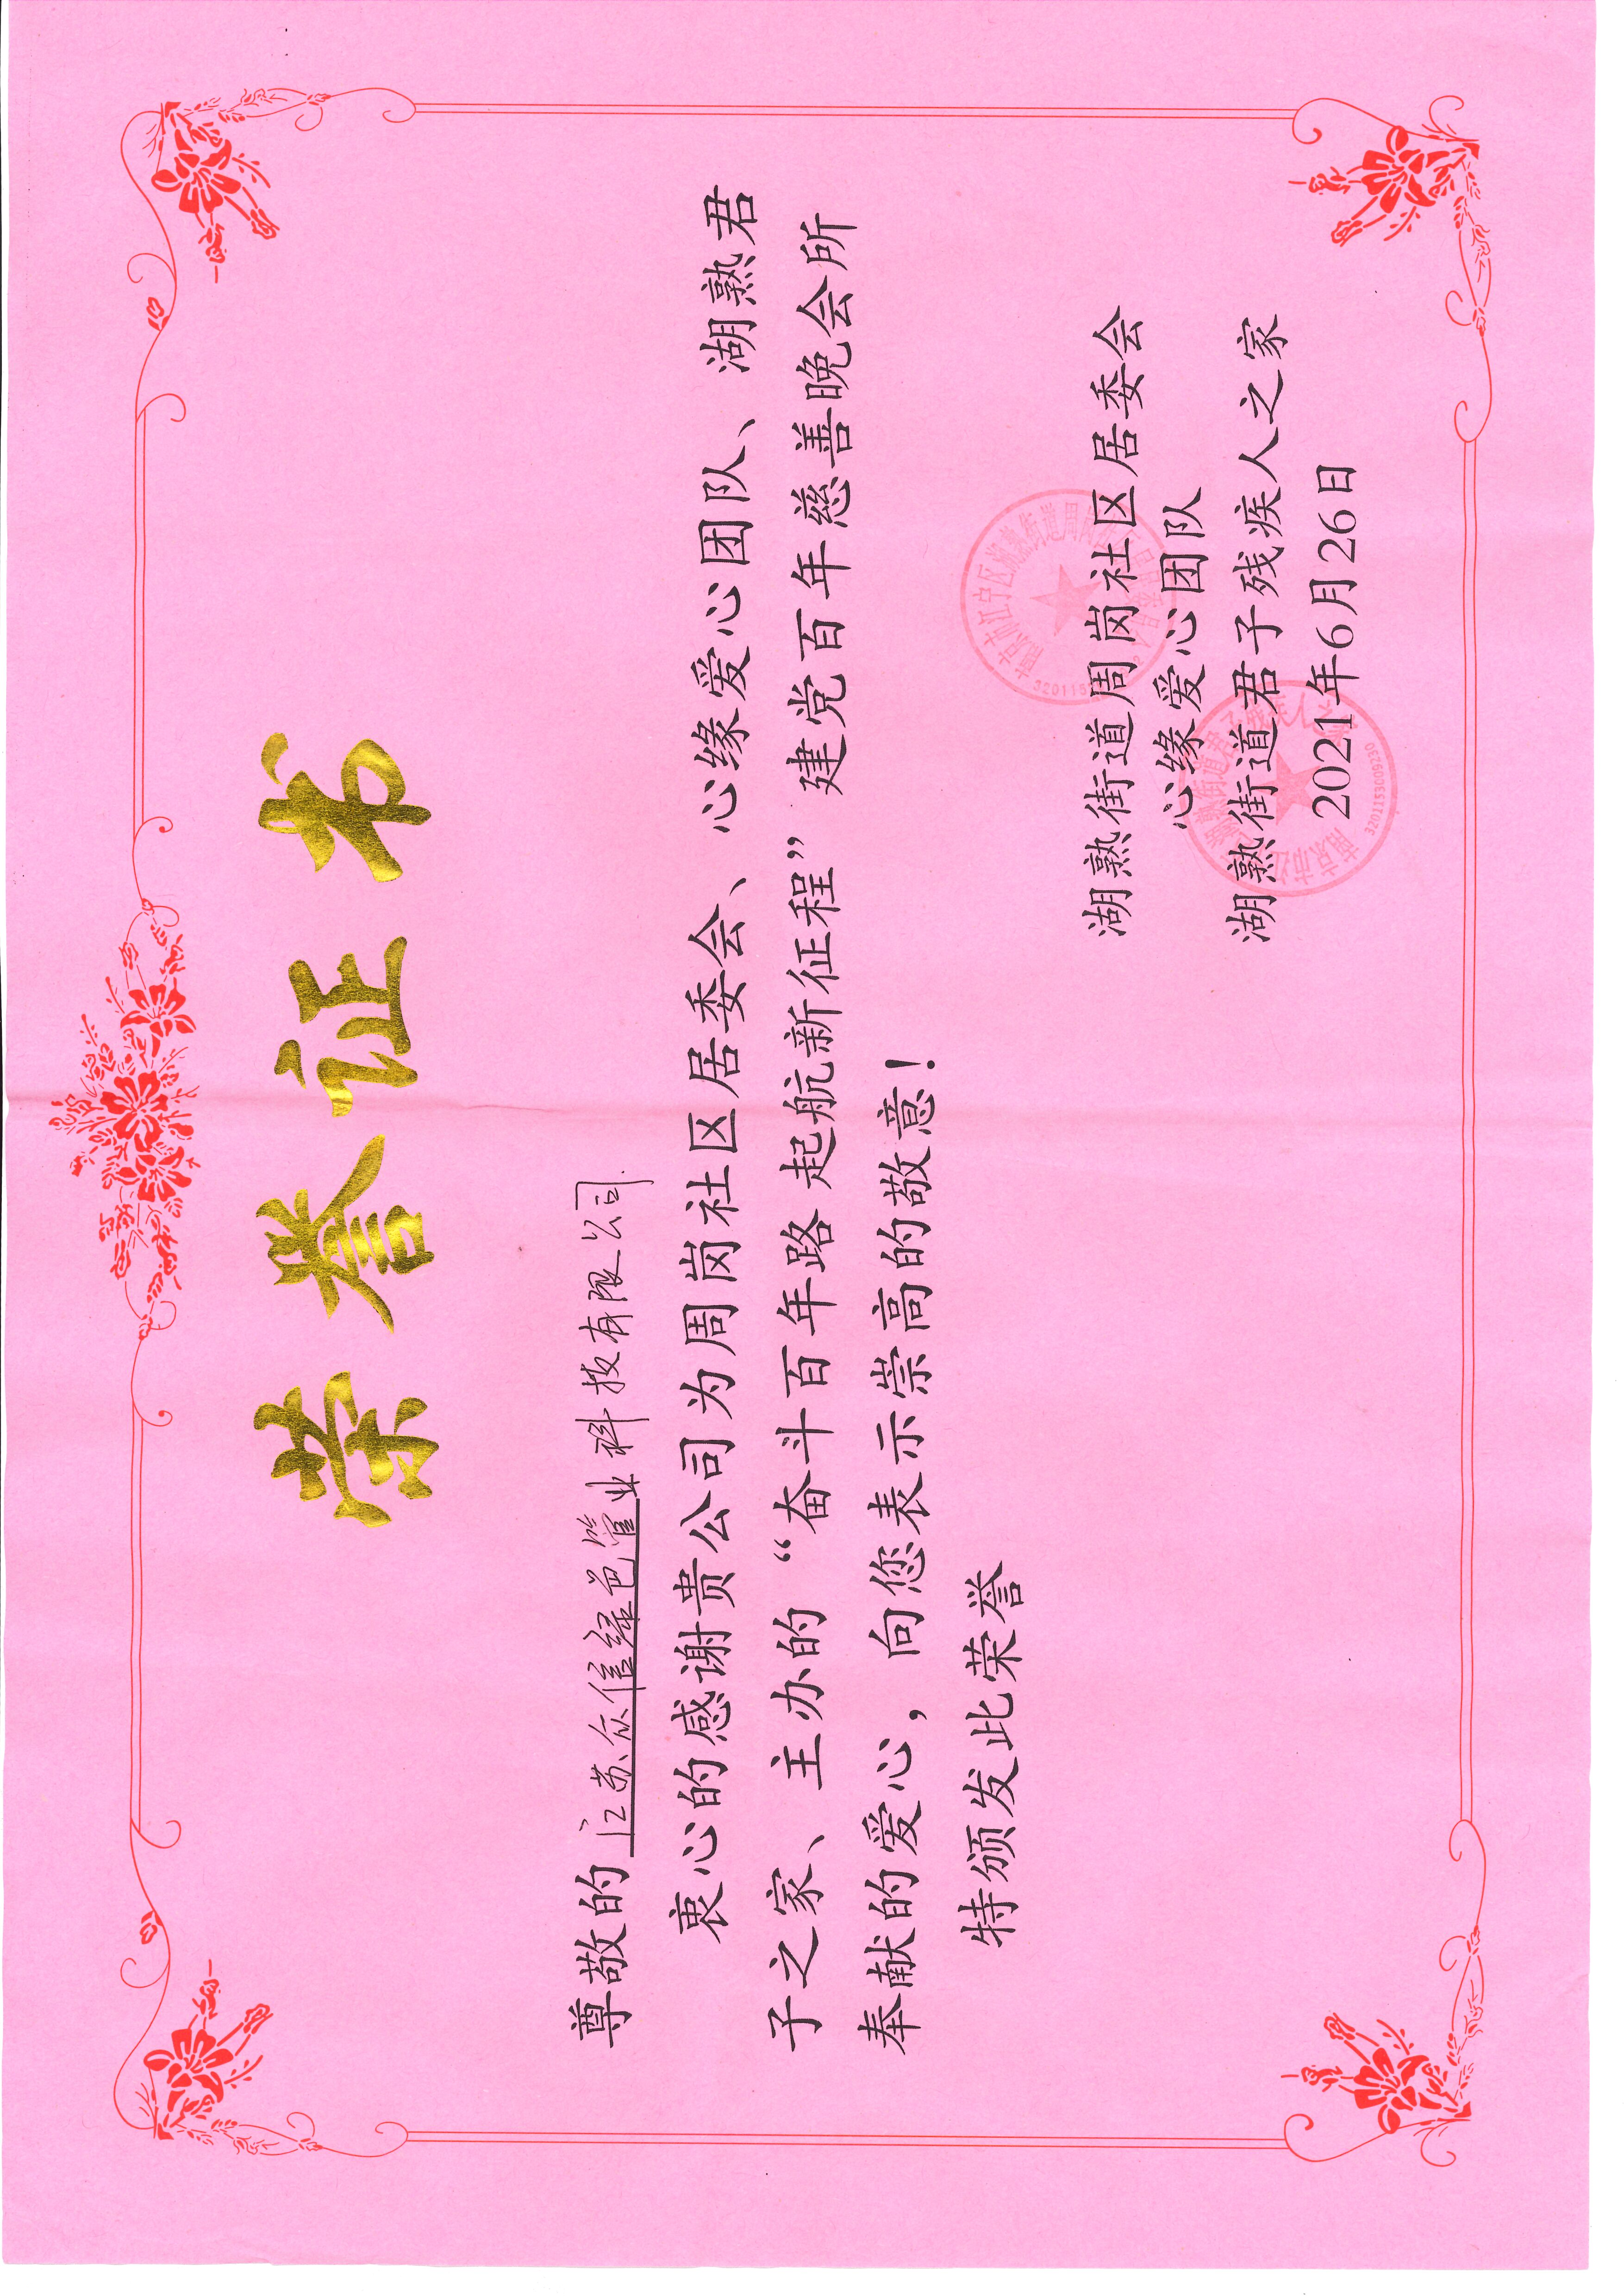 荣誉证书
尊敬的江苏众信绿色管业科技有限公司
衷心的感谢贵公司为周岗社区居委会、心缘爱心团队、湖熟君
子之家、主办的“奋斗百年路起航新征程”建党百年慈善晚会所
奉献的爱心，向您表示崇高的敬意！
特颁发此荣誉
湖熟街道周岗社区居委会
心缘爱心团队
湖熟街道君子残疾人之家
2021年6月26日
南京市江宁区湖熟街道周岗
3201153009230